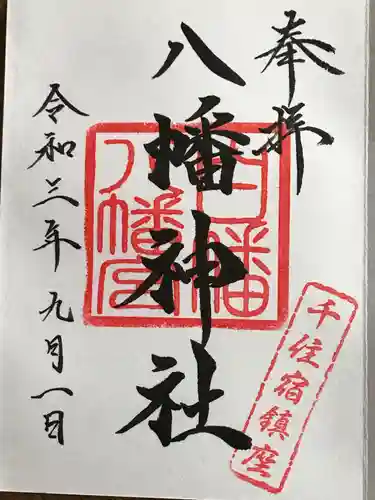 奉拝
八幡神社
令和三年九月一日
千住宿鎮座